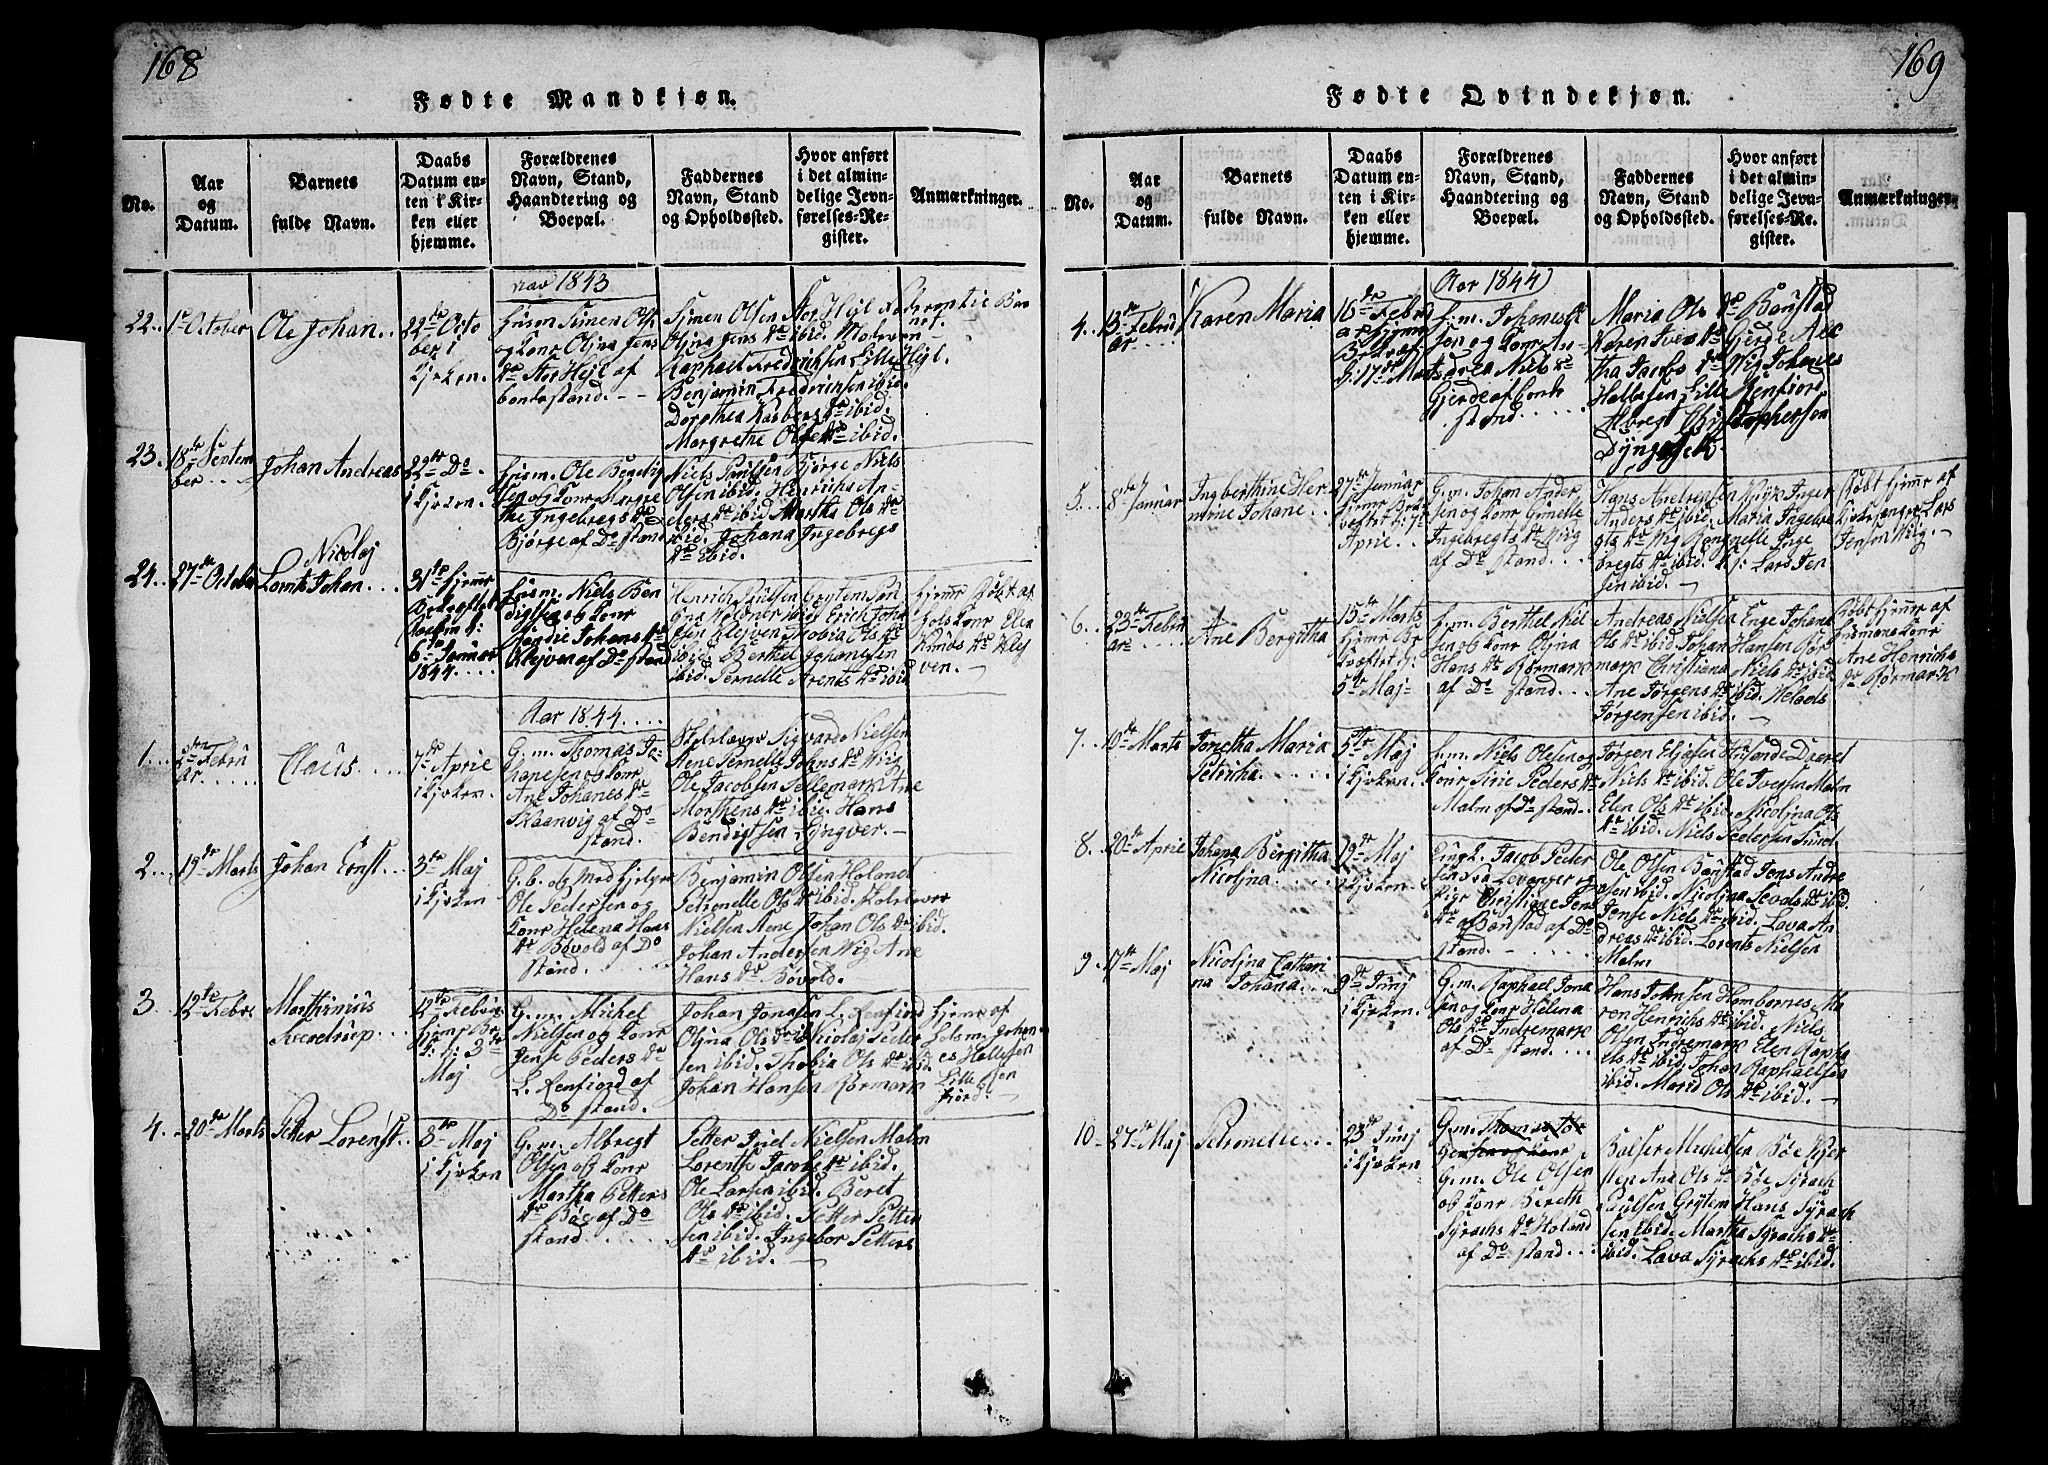 168
Fødte Mandkjøn.
No.
Aar
og
Datum.
Barnets
fulde Navn.
Daabs
Datum en-
ten i Kir-
ken eller
hjemme.
Forældrenes
Navn, Stand,
Haandtering og
Boepæl.
Faddernes
Navn, Stand
og Opholdssted.
Hvor anført
i det almin-
delige Jevn-
førelses-Re-
gister.
Anmærkninger.
1843
22.. 1e October
Ole Johan..
22de Octo
ber i
Kjirken.
Huusm. Simen Ols
og Konr Oljna Jens
dr Stor Hejl af
bondestand. - -
Simen Olsen Stor Hejl
Oljna Jens dr ibid.
Raphael Fredrichsen Lille Hejl.
Benjamin Fredrichsen ibid.
Dorothea ibid.
Margrethe Ols dr ibid.
23. 18de Septem
ber ...
Johan Andreas
22de Do.
i Kjirken.
Huusm. Ole Bendig
sen og Konr Margre
the Ingebregs dr
Bjørge af Do stand
Niels Poulsen Bjørge Niels
Olsen ibid. Henrich
dr ibid Martha Ols dr
ibid. Johana Ingebregs
dr Ibid.
24.. 27de October
Nicolaj
Lornts Johan ...
31te hjemr
6te Januar
1844.....
Huusm. Niels Ben
digtsen og Konr
Johans dr
Klejven af Do stand
Henrich Poulsen Grytem
ibid Erich Joha
sen Klejven Thobia Ols dr
ibid Berthel Johansen
ibid. Pernelle Arents dr ibid
hjemr døbt af
Elen
Knuds dr Klej
ven. -
Aar 1844....
1... 2den Febru
ar......
Claus.....
7de Aprie
i Kjirken
G.m. Thomas Jo
hanesen og Konr
Ane Johanes dr
Skaanvig af Do
stand.
Skolelærer Sigvard Nielsen
Ane Pernelle Johns dr Wig
Ole Jacobsen Sellemark Ane
Morthens dr ibid. Hans
Bendigtsen Lyngver. -
2... 19de Marts
Johan Ernst...
3de Maj
i Kjirken
G.b. og Medhjelper
Ole Pedersen og
Konr Helena Hans
dr Bøvold af Do
stand.....
Benjamin Olsen Holand
Petronelle Ols dr ibid. Skolelærer
Nielsen Ane Johan Ols dr ibid.
Johan Andersen Wig Ane
Hans dr Bøvold.
3. 12te Febr.
Marthinius
...
12te Februar
hjemr Be
3de
Maj
G.m. Michel
Nielsen og Konr
Jense Peders dr
L. Renfiord af
Do stand.
Johan Jonasen L. Renfiord
Oljna Ols dr ib Nicolaj Peder
sen ibid. Thobia Ols dr ibid.
Johan Hansen Rørmark
hjemr af
Johan
es Hallesen
Lille Ren
fiord. -
4. - 20de Marts
Petter Lorenst..
3de Maj
i Kjirken
G.m. Albregt
Olsen og Konr
Martha Petters
dr Bøe af Do
stand.....
Petter Juel Nielsen Malm
Lorentse Jacobs dr ibid.
Ole Larsen ibid. Beret
Ols dr ibid. Petter Petter
sen ibid. Ingebor Petters
dr ibid. -
169
Fødte Qvindekjøn.
No.
Aar
og
Datum.
Barnets
fulde Navn.
Daabs
Datum en-
ten i Kir-
ken eller
hjemme.
Forældrenes
Navn, Stand,
Haandtering og
Boepæl.
Faddernes
Navn, Stand
og Opholdssted.
Hvor anført
i det almin-
delige Jevn-
førelses-Re-
gister.
Anmærkninger.
Aar 1844
4.. 13de Febru
ar....
Karen Maria
16de Febru
ar hjemr
17de Marts
h.m. Johanes
sen og Konr An
drea Niels dr
Gjerde af bonde
stand.....
Maria Ols dr Banstad
Karen Ivers dr Gjerde Alec
tha Jacobs dr Wig Johanes
Hallesen Lille Renfiord
Albregt Christophersen
Dyngesell.
5... 8de Januar
Ingberthine Her
mine Johane..
27de Januar
hjemr
7de
Aprie..
G.m. Johan Ander
sen og Konr Gunelle
Ingebregts dr Wiig
af Do stand....
Hans Andersen Wiig Inger
Anders dr ibid. Maria Ingebre
gts dr Wig Ronnelle Inge
bregts dr ibid. Kj: Lars Jen
sen ibid. -
døbt hjemr af
Kirkesanger Lars
Jensen Wiig. -
6.. 23de Febru
ar.....
Ane Bergitha
15de Marts
hjemr Be
kræftet Kj:
5te Maj-
h.m. Berthel Niel
sen og Konr Oljna
Hans dr Rørmark
af Do stand...
Andreas Nielsen Enge Johana
Ols dr ibid Johan Hansen Rør
mark Christiana Niels dr ibid
Ane Jørgens dr ibid.
Jørgensen ibid. -
døbt hjemr af
huusmans Konr
Ane Henrichs
dr Rørmark
7. 10de Marts
Jonetha Maria
Petricha.....
5te Maj
i Kjirken.
h.m. Niels Olesen og
Konr Sirie Peders dr
Malm af Do stand..
Jørgen Eljasen Beret
Niels dr ibid. Ole Iversen Malm
Elen Ols dr ibid. Nicoljna Ols
dr ibid. Niels Pedersen Sund
8. 20de Aprie
Johana Bergitha
Nicoljna....
19de Maj
i Kjirken..
Ungk. Jacob Peder
sen fra Levanger og
Pige Christiane Jens
dr Banstad af Do
stand.....
Ole Olsen Banstad Jens Andre
asen ibid. Nicoljna Sevals dr ibid.
Jense Niels dr ibid. Lava An
dreas dr ibid. Lorents Nielsen
Malm
9. 17de Maj
Nicoljna Cathari
na Johana...
9de Junj
i Kjirken.
G.m. Raphael Jona
sen og Konr Helena
Ols dr Indremark
af Do stand....
Hans Johnsen Hombornes Ma
ren Henrichs dr ibid. Niels
Olsen Indremark Elen Rapha
els dr ibid. Johan Raphaelsen
ibid. Marit Ols dr ibid. -
10 - 27de Maj
Petronelle...
23de Junj
i Kjirken
G.m. Thomas Jør
gensen og Konr
G.m. Ole Olsen
og Konr Bereth
Syrachs dr Holand
af Do stand...
Balser Michelsen Bøe Kjer
sten Ane Ols dr Bøe Syrach
Poulsen Grytem Hans Syrach
sen ibid. Martha Syrachs dr
ibid. Lava Syrachs dr ibid.